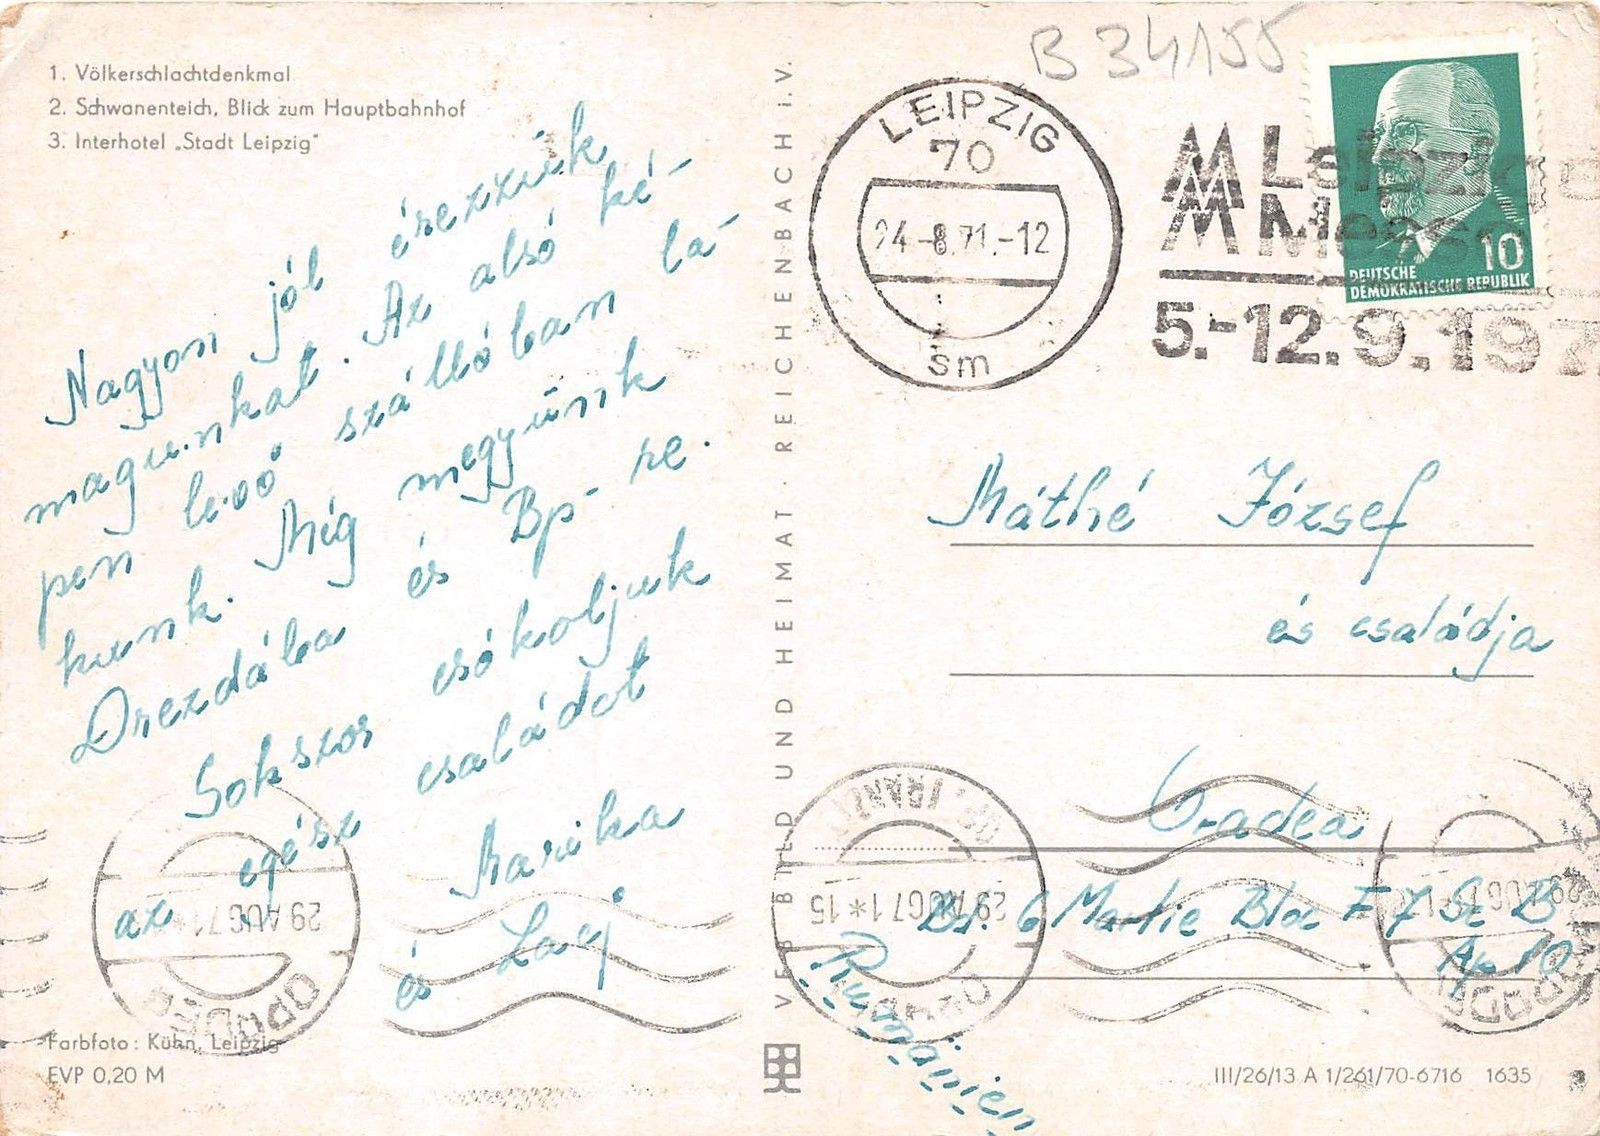 1. Völkerschlachtdenkmal
2. Schwanenteich, Blick zum Hauptbahnhof
3. Interhotel „Stadt Leipzig"
Nagyon jól érezzük
magunkat. Az alsó ké-
pen levő szállóban la-
kunk. Még megyünk
Drezdába és Bp-re.
Sokszor csókoljuk
az egész családot
Marika
és Laci
Farbfoto: Kühn, Leipzig
EVP 0,20 M
VEB BILD UND HEIMAT · REICHENBACH i. V.
B 34155
LEIPZIG
70
24.-8.71.-12
sm
MM Leipziger
Messe
5.-12.9.197
10
DEUTSCHE
DEMOKRATISCHE REPUBLIK
Máthé József
és családja
Oradea
Bd. 6 Martie Bloc F 7 Sc B
Ap 10
Rumänien
29 AUG 71
ORADEA
OP. TRANZIT
29 AUG 71 * 15
ORADEA
29 AUG 71
ORADEA
III/26/13 A 1/261/70-6716 1635